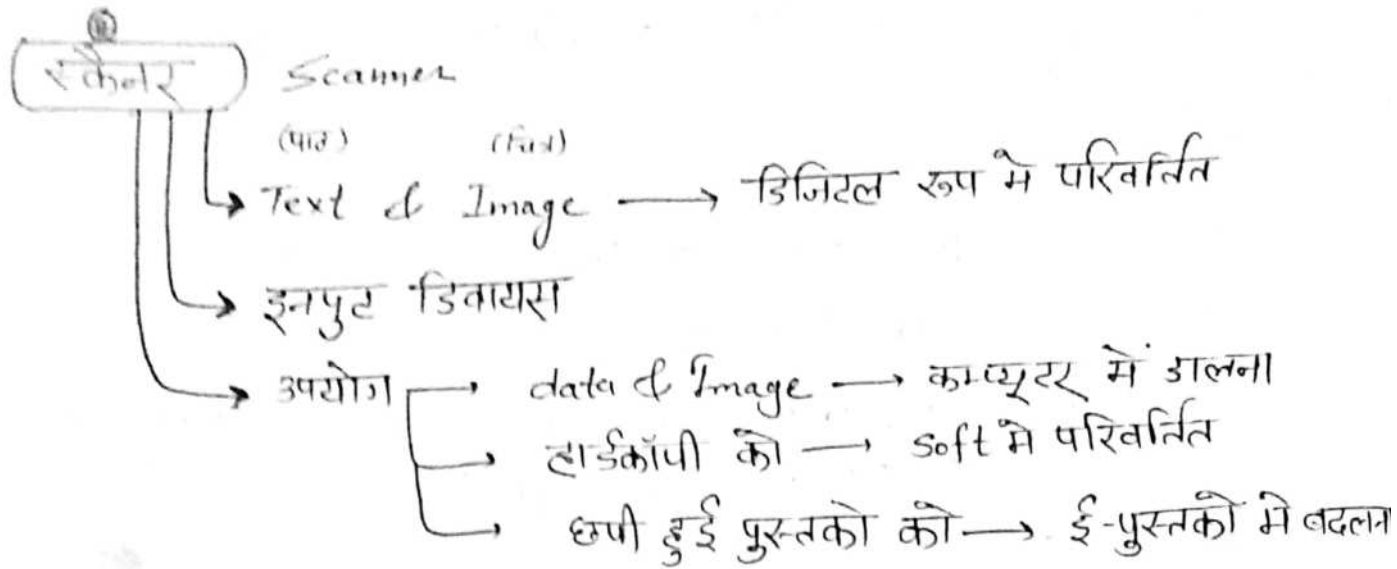 स्कैनर Scanner
(पाठ) (चित्र)
Text & Image → डिजिटल रूप मे परिवर्तित
इनपुट डिवायस
उपयोग → data & Image → कम्प्यूटर में डालना
→ हार्डकॉपी को → Soft मे परिवर्तित
→ छपी हुई पुस्तको को → ई-पुस्तको मे बदलना